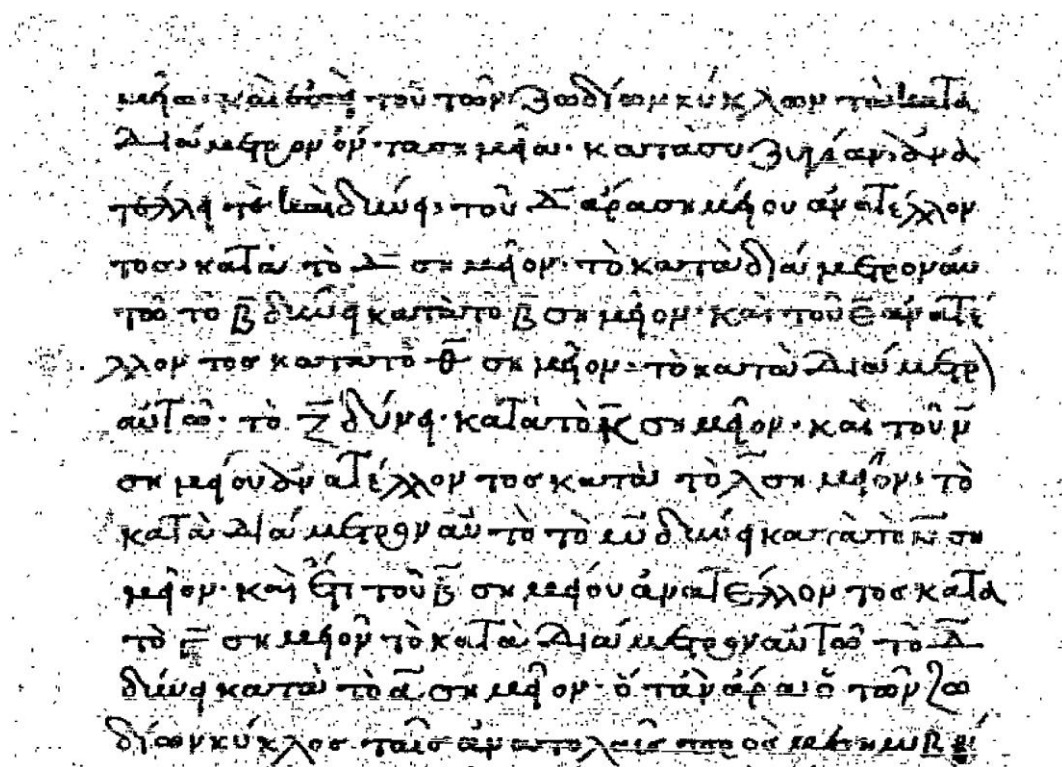 μεῖα· καὶ ἐπεὶ τοῦ τῶν ζωδίων κύκλου τὰ κατὰ
διάμετρον ὄντα σημεῖα· κατὰ συζυγίαν ἀνα
τέλλει τὲ καὶ δύνει· τοῦ Δ ἄρα σημείου ἀνατέλλον
τοσ κατὰ τὸ Δ σημεῖον· τὸ κατὰ διάμετρον αὐ
τῶ τὸ β δύνει κατὰ τὸ β σημεῖον· καὶ τοῦ ε ἀνατέ
λλοντοσ κατὰ τὸ θ σημεῖον· τὸ κατὰ διάμετρ
αὐτῶ· τὸ ζ δύνει· κατὰ τὸ κ σημεῖον· καὶ τοῦ ν
σημείου ἀνατέλλοντοσ κατὰ τὸ λ σημεῖον· τὸ
κατὰ διάμετρον αὐτὸ τὸ μ δύνει κατὰ τὸ ση
μεῖον· καὶ ἔτι τοῦ β σημείου ἀνατέλλοντοσ κατὰ
τὸ σημεῖον τὸ κατὰ διάμετρον αὐτῶ τὸ Δ
δύνει κατὰ τὸ α σημεῖον· ὅταν ἄρα ὁ τῶν ζω
δίων κύκλος ταῖς ἀνατολαῖς πρὸς μεσημβρί